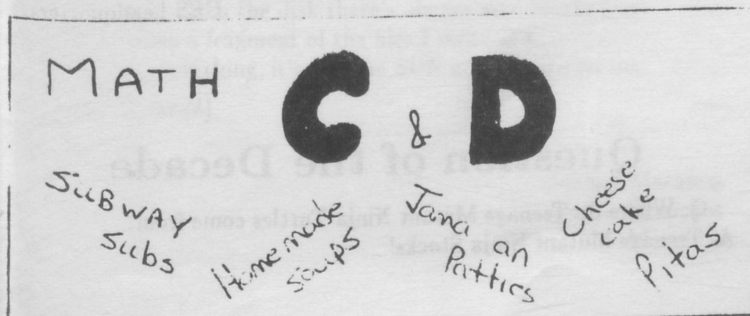 MATH C & D
SUBWAY
Subs
Homemade
Soups
Jamaican
Patties
Cheese
Cake
Pitas